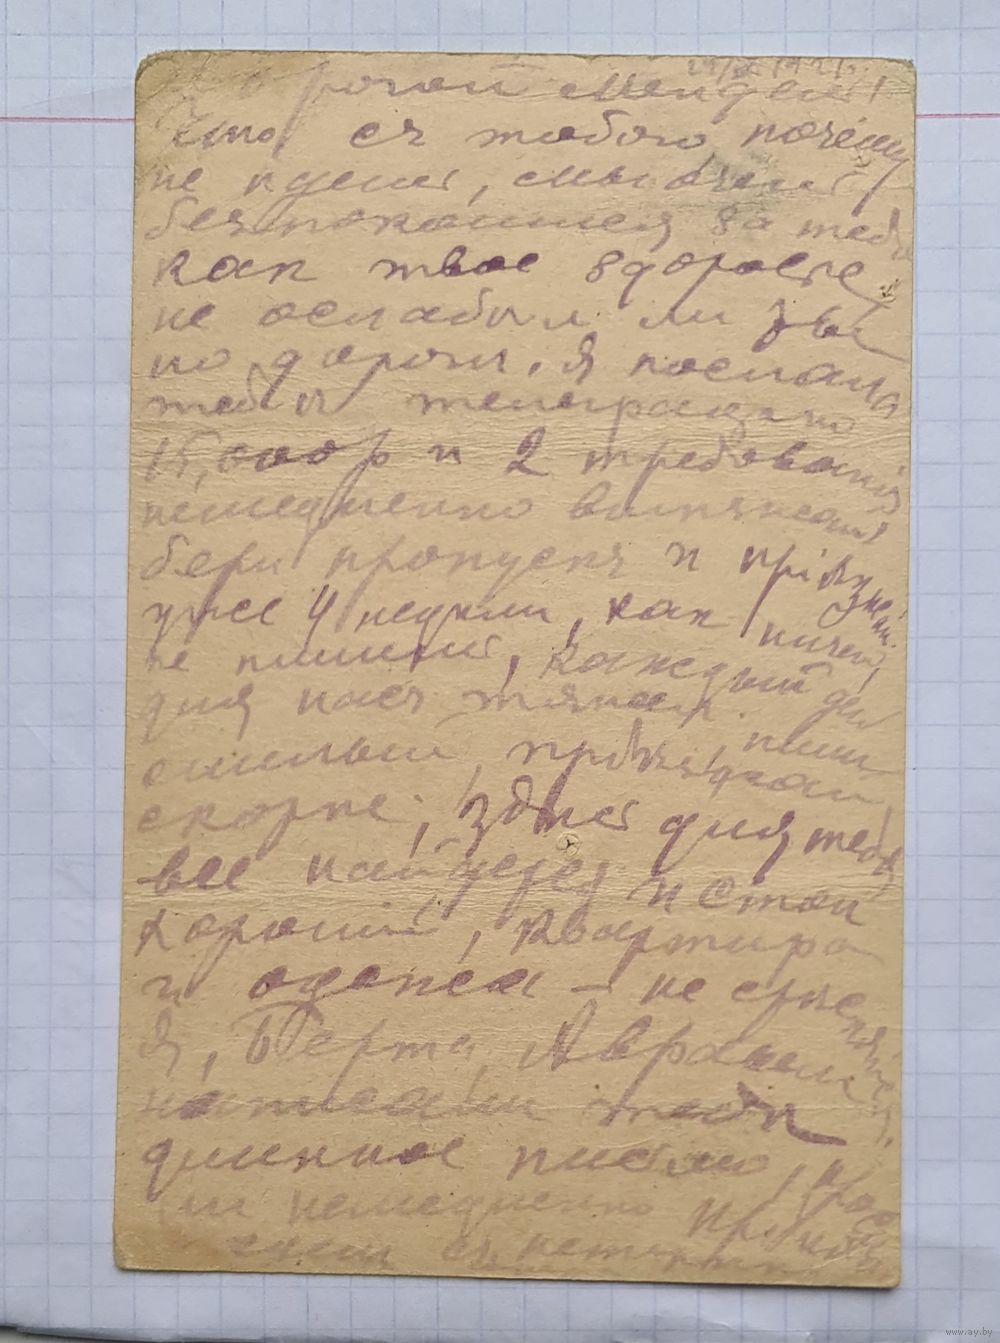 Дорогой Мендель!
Что съ тобою почему
не едешь, мы очень
безпокоимся за тебя
как твое здоровье
не ослабъл ли ты
по дороги. Я послала
тебѣ телеграфно
15,000 р и 2 требования
немедленно
бери пропускъ и
уже 4 недели, как ничего
не пишешь, каждый день
для насъ
милый, приѣзжай, пиши
скорѣе, здѣсь для тебя
все найдется и стол
хороший, квартира
и одежа – не
Я, Берта, Авраам
написали тебѣ
длинное письмо,
немедленно
съ
www.ay.by